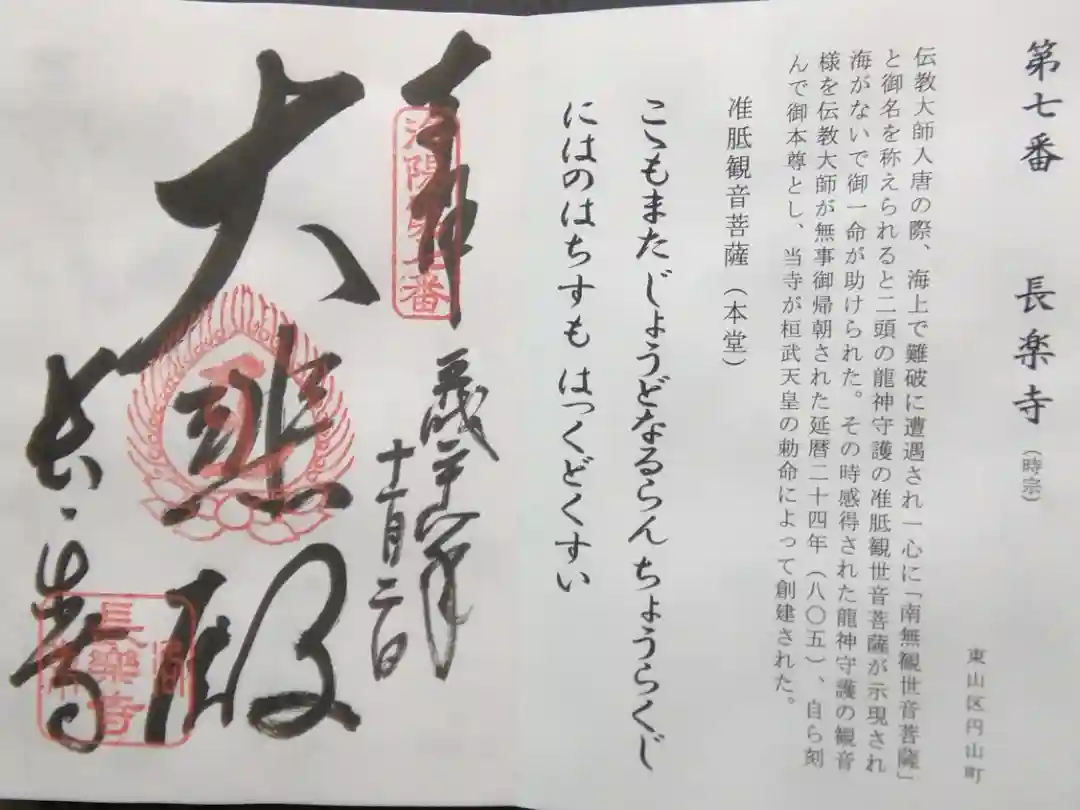 第七番　長楽寺（時宗）
東山区円山町
伝教大師入唐の際、海上で難破に遭遇され一心に「南無観世音菩薩」
と御名を称えられると二頭の龍神守護の准胝観世音菩薩が示現され
海がないで御一命が助けられた。その時感得された龍神守護の観音
様を伝教大師が無事御帰朝された延暦二十四年（八〇五）、自ら刻
んで御本尊とし、当寺が桓武天皇の勅命によって創建された。
准胝観音菩薩（本堂）
こゝもまた じょうどなるらん ちょうらくじ
にはのはちすも はっくどくすい
奉拝
洛陽第七番
大悲殿
長楽寺
長樂寺